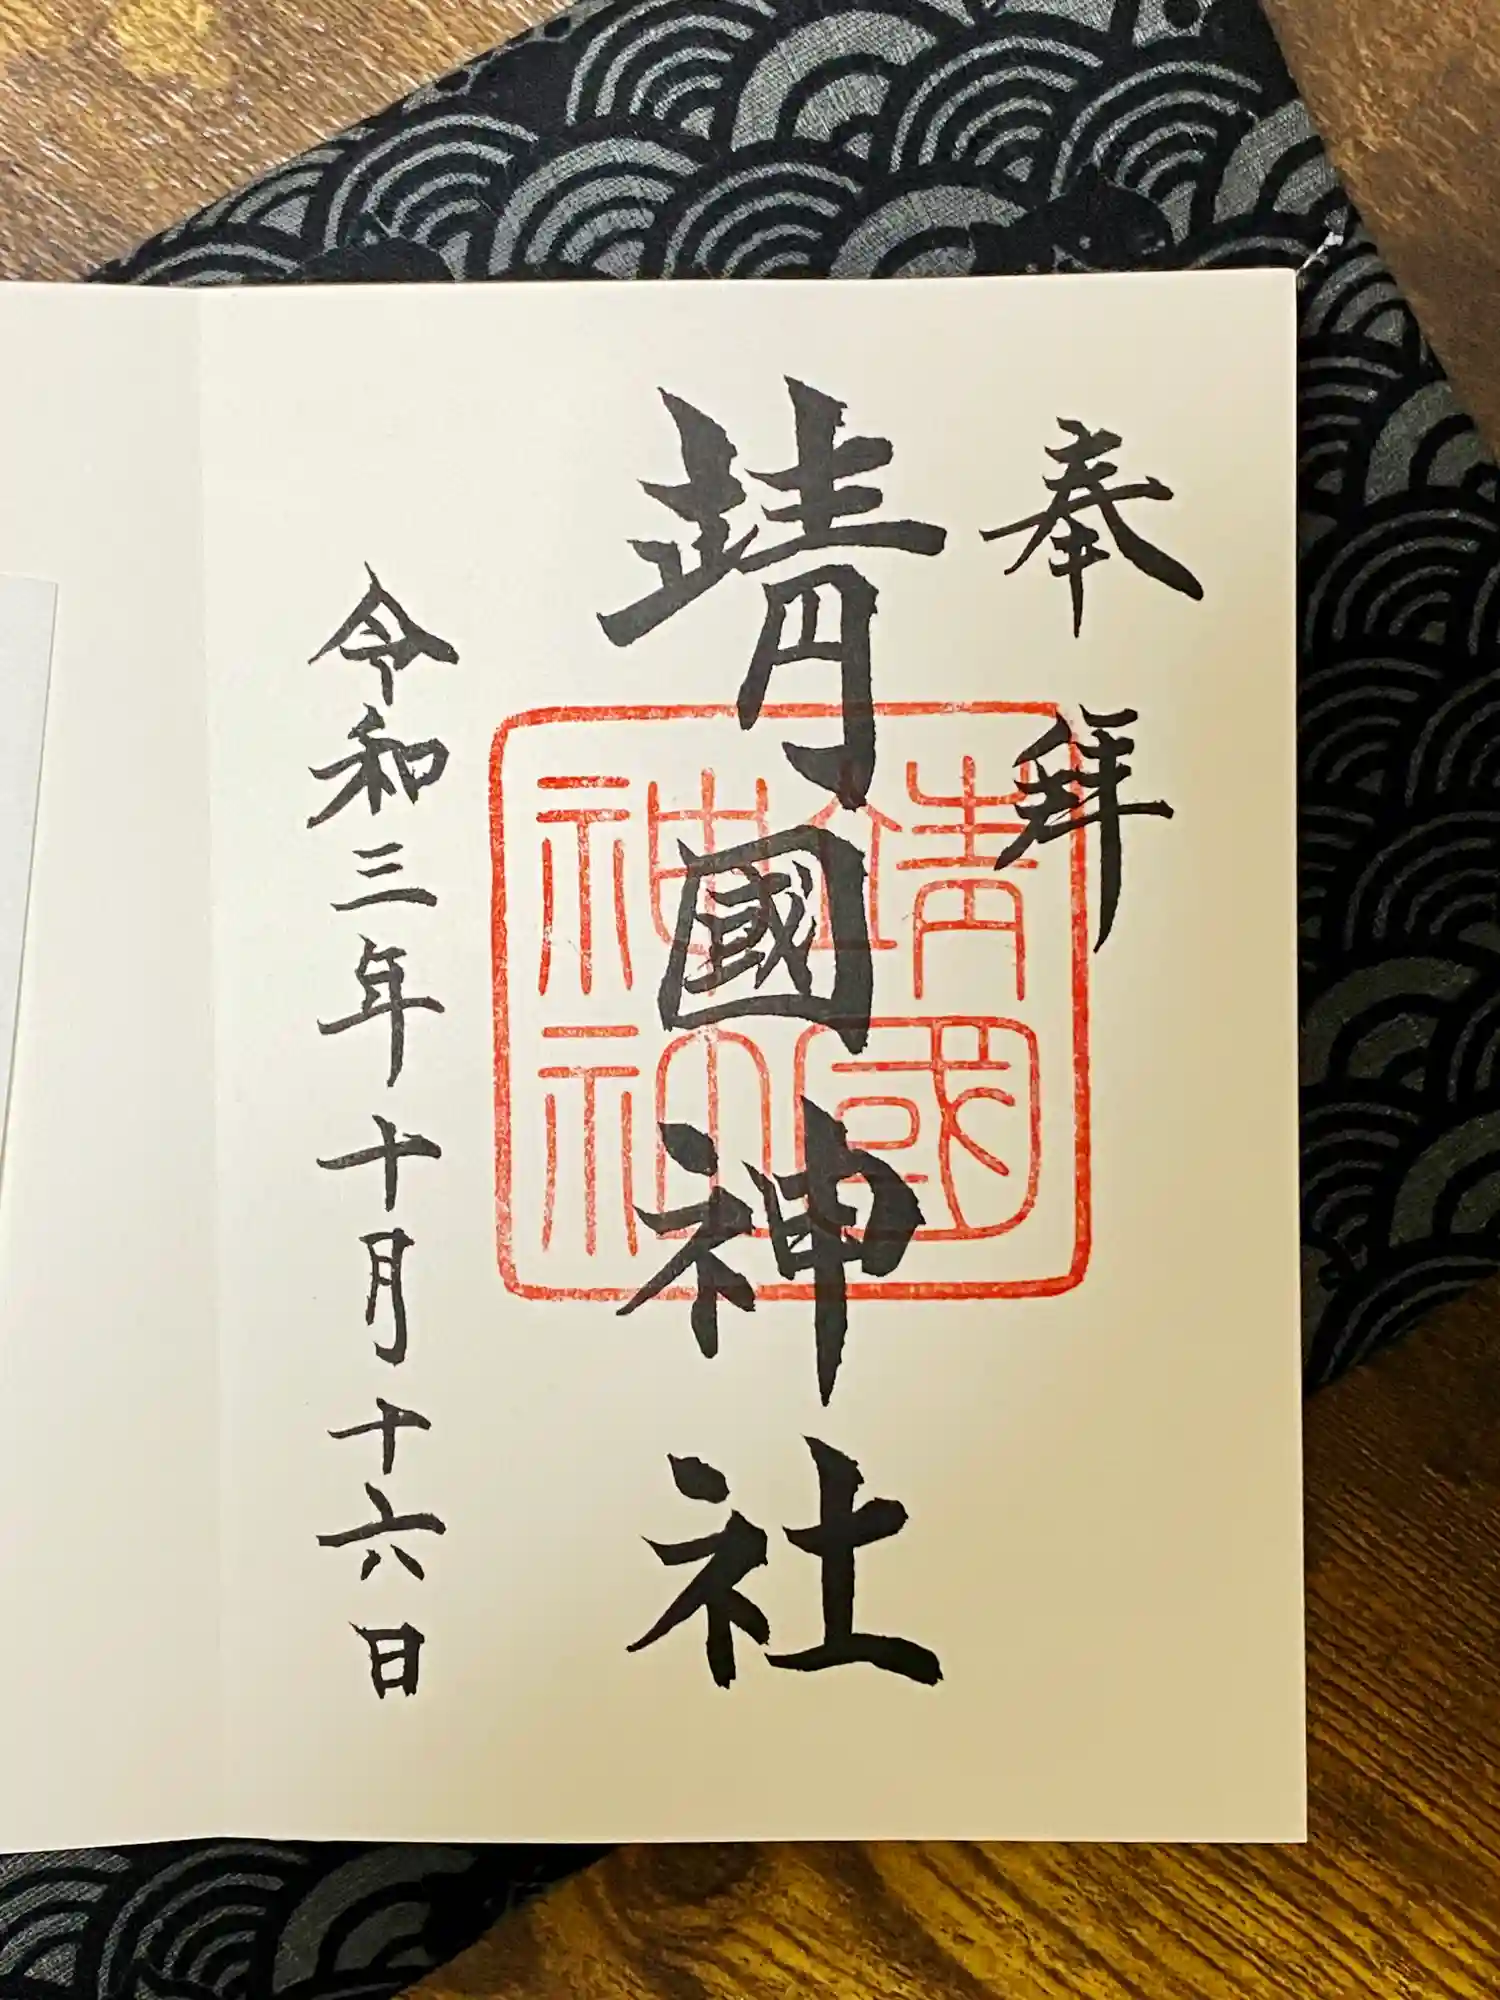 奉拜
靖國神社
靖國
神社
令和三年十月十六日